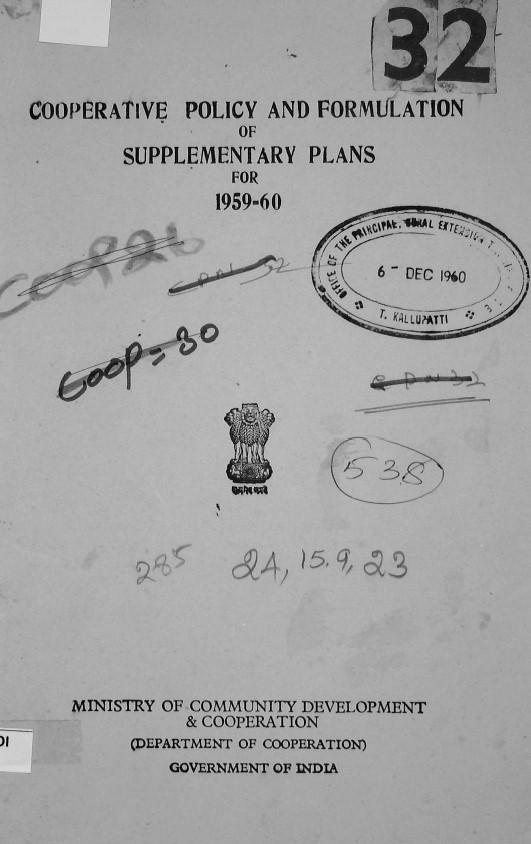 32
COOPERATIVE POLICY AND FORMULATION
OF
SUPPLEMENTARY PLANS
FOR
1959-60
OFFICE OF THE PRINCIPAL, RURAL EXTENSION
6 - DEC 1960
T. KALLUPATTI
Coop=30
538
285
24, 15.9, 23
सत्यमेव जयते
MINISTRY OF COMMUNITY DEVELOPMENT
& COOPERATION
(DEPARTMENT OF COOPERATION)
GOVERNMENT OF INDIA